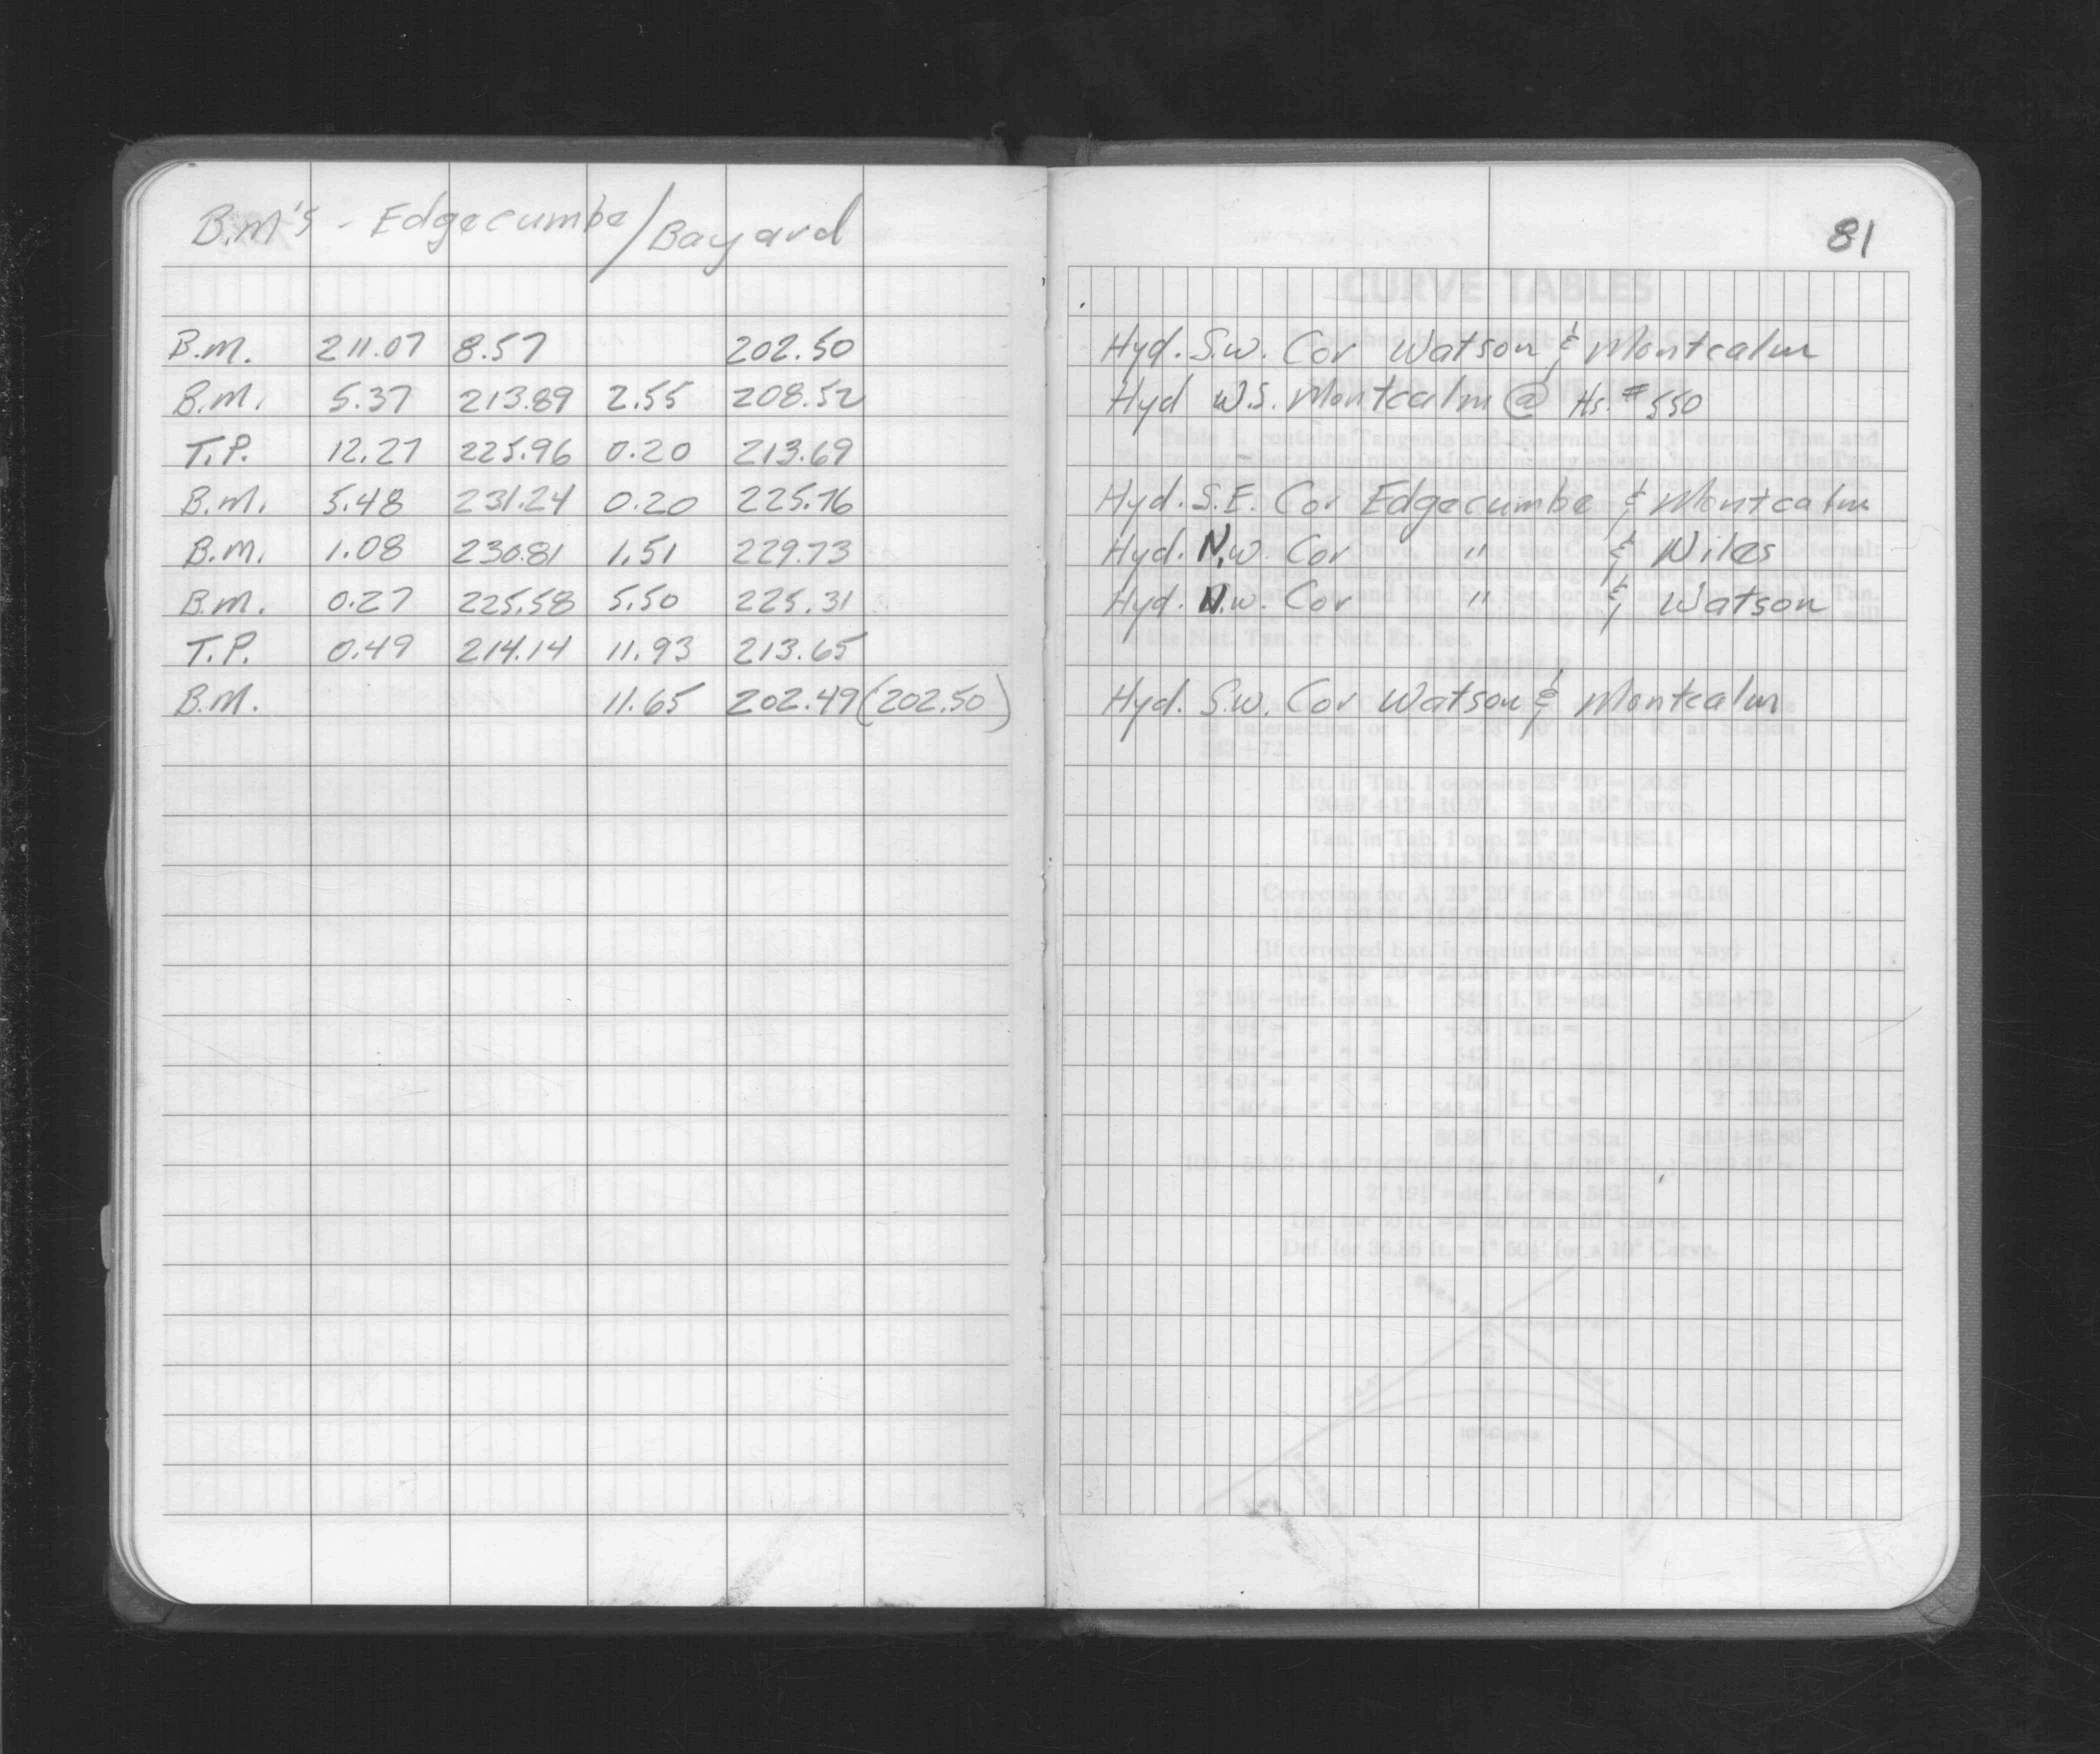 B.M's - Edgecumbe/Bayard
81
B.M. 211.07 8.57 202.50 Hyd. S.W. Cor Watson & Montcalm
B.M. 5.37 213.89 2.55 208.52 Hyd W.S. Montcalm @ Hs. #550
T.P. 12.27 225.96 0.20 213.69
B.M. 5.48 231.24 0.20 225.76 Hyd. S.E. Cor Edgecumbe & Montcalm
B.M. 1.08 230.81 1.51 229.73 Hyd. N.W. Cor " & Niles
B.M. 0.27 225.58 5.50 225.31 Hyd. N.W. Cor " & Watson
T.P. 0.49 214.14 11.93 213.65
B.M. 11.65 202.49 (202.50) Hyd. S.W. Cor Watson & Montcalm
CURVE TABLES